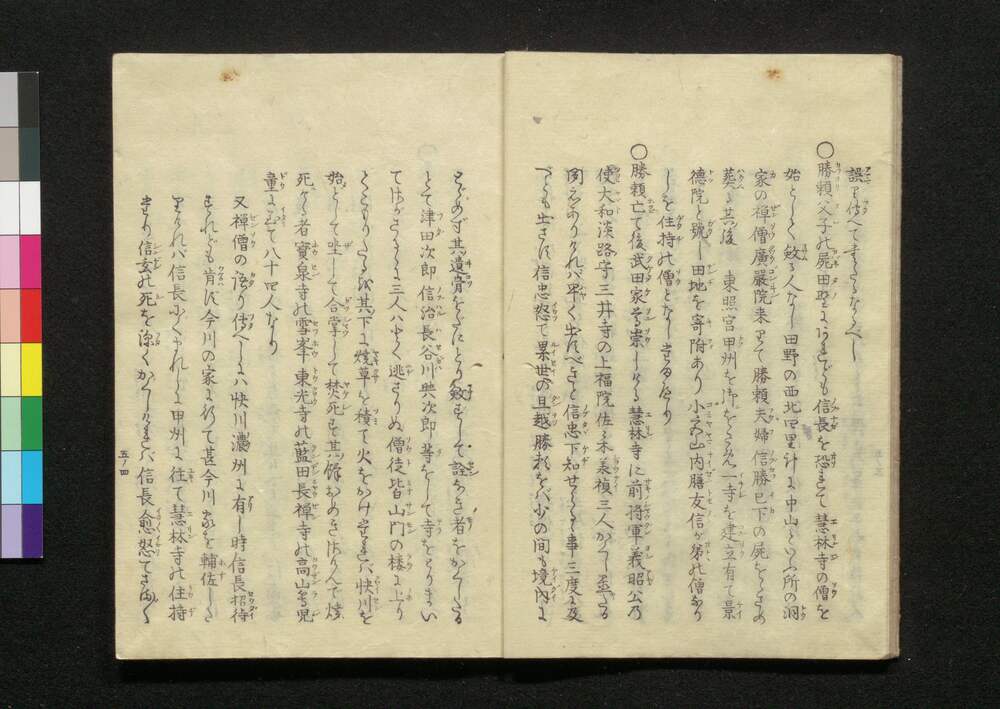 誤り伝へてするなるべし
〇勝頼父子の屍田野にありけれども信長を恐れて慧林寺の僧を
始として斂る人なし田野の西北四里計に中山といふ所の洞
家の禅僧廣嚴院来りて勝頼夫婦信勝已下の屍ををさめ
葬る其後 東照宮甲州を御をさめ一寺を建立有て景
徳院と號し田地を寄附あり小宮山内膳友信が弟の僧なり
しを住持の僧となし
〇勝頼亡て後武田家尊崇しける慧林寺に前将軍義昭公乃
使大和淡路守三井寺の上福院佐々木義禎三人かくし置たる
聞えありければ早く出すべきと信忠下知せらるる事三度に及
べども出さず信忠怒て累世の旦越勝頼をバ少の間も境内に
とどめず其遺骨をだにとり斂ずして詮なき者をかくしたる
とて津田次郎信治長谷川與次郎等をして寺をとりまい
てさがさるるに三人ハとく逃さりぬ僧徒皆山門の楼に上り
とぢこもりたるを其下に焼草を積て火をかけければ快川を
始として坐して合掌して焚死す其餘おめきさけんで焼
死る者寶泉寺の雪峯東光寺の藍田長禅寺の高山等児
童にいたって八十四人なり
又禅僧の語り傳へしハ快川濃州に有し時信長招待
すれども肯ず今川の家に行て甚今川家を輔佐した
りければ信長にくまれしに甲州に往て慧林寺の住持
せり信玄の死を深くかくしければ信長愈怒てさがく
五ノ四